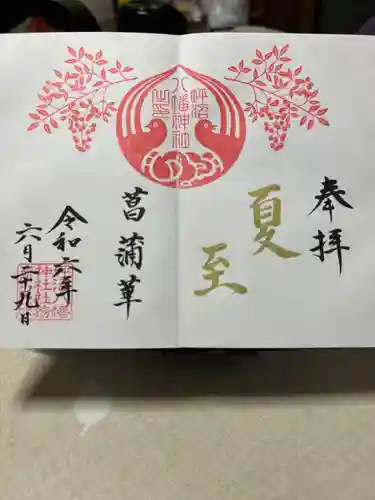 奉拝
夏至
八幡神社
菖蒲華
令和六年
六月二十九日